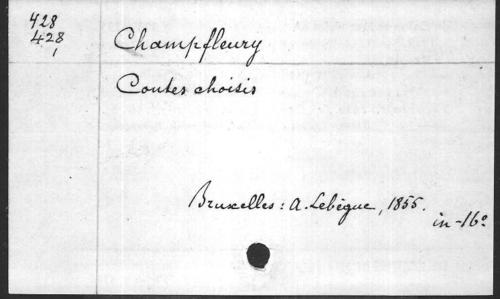 428
428
1
Champfleury
Contes choisis
Bruxelles: A. Lebègue, 1855.
in-16º